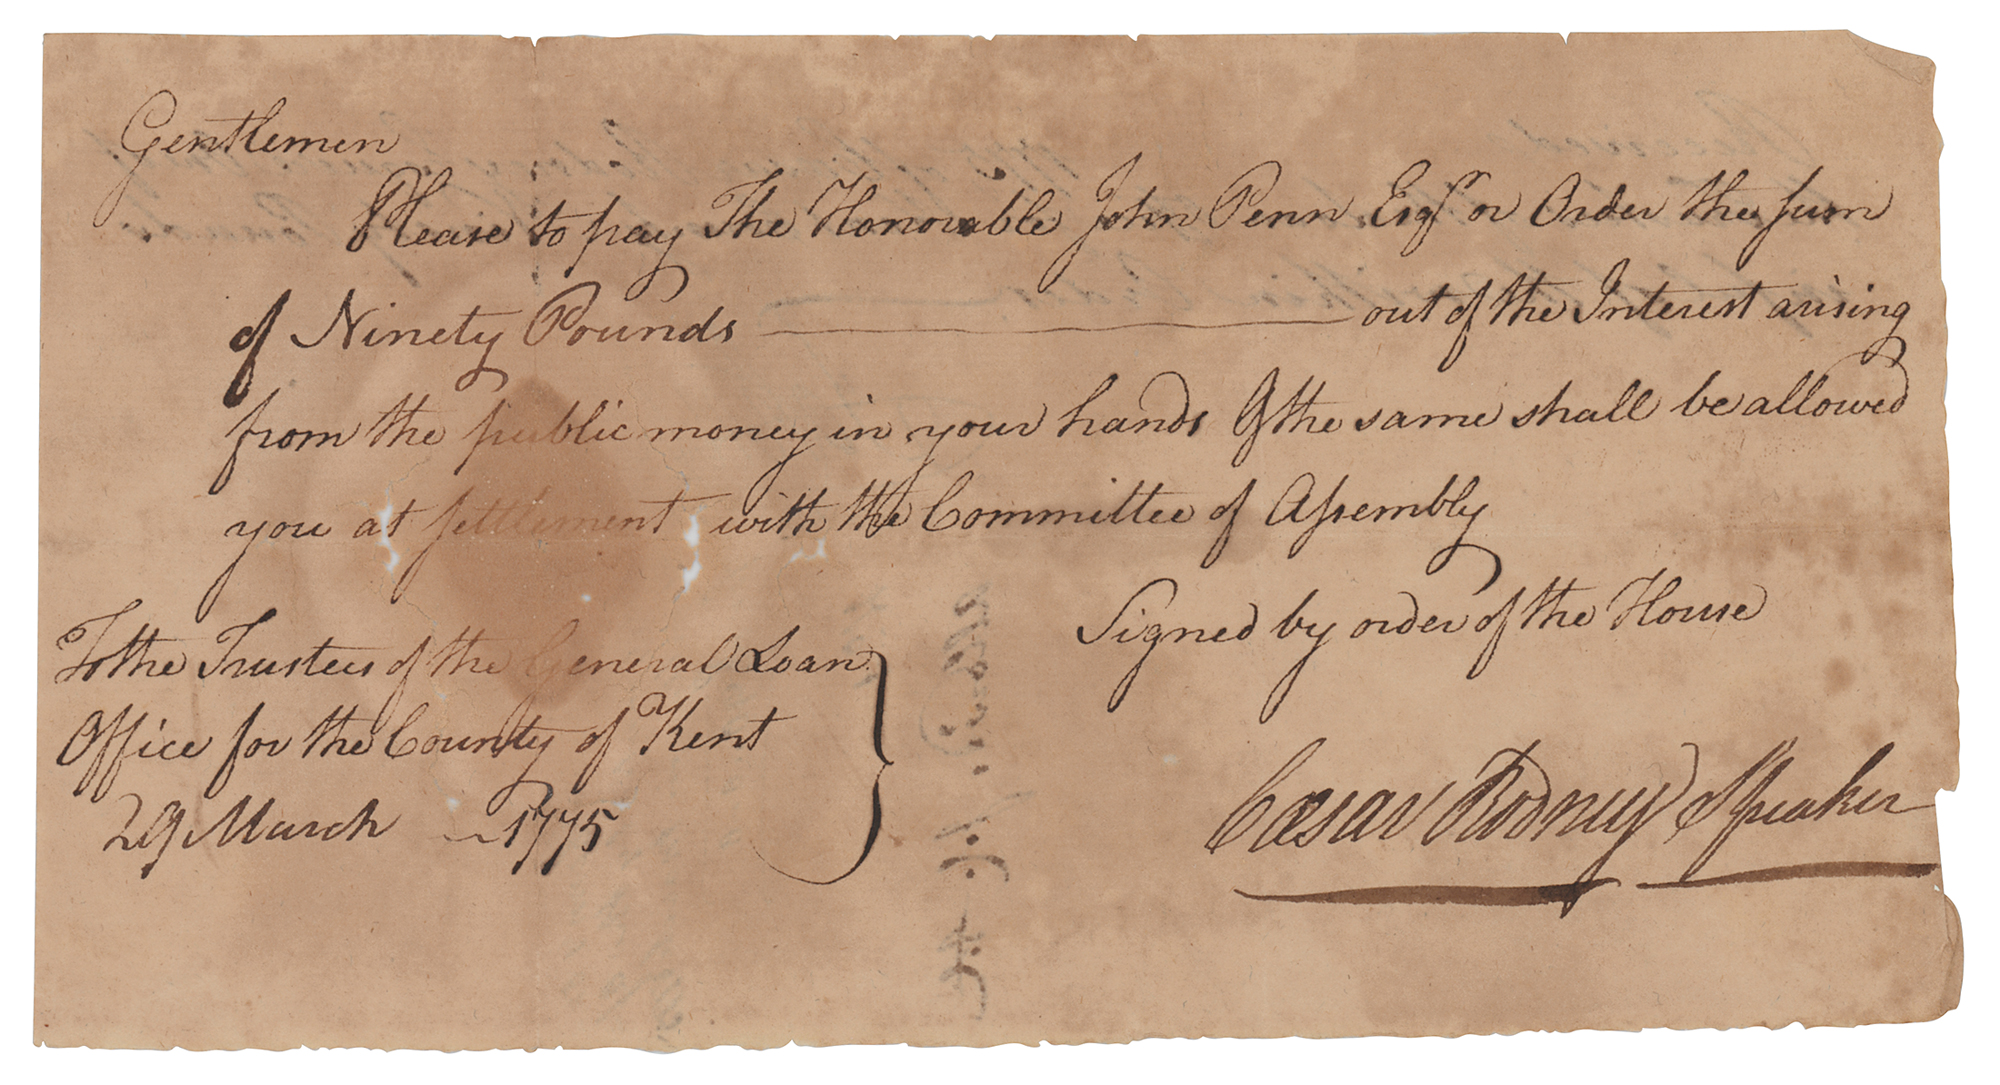 Gentlemen
Please to pay The Honorable John Penn Esqr or Order the sum
of Ninety Pounds ——— out of the Interest arising
from the public money in your hands & the same shall be allowed
you at settlement with the Committee of Assembly
Signed by order of the House
To the Trustees of the General Loan
Office for the County of Kent
29 March — 1775
Cæsar Rodney Speaker